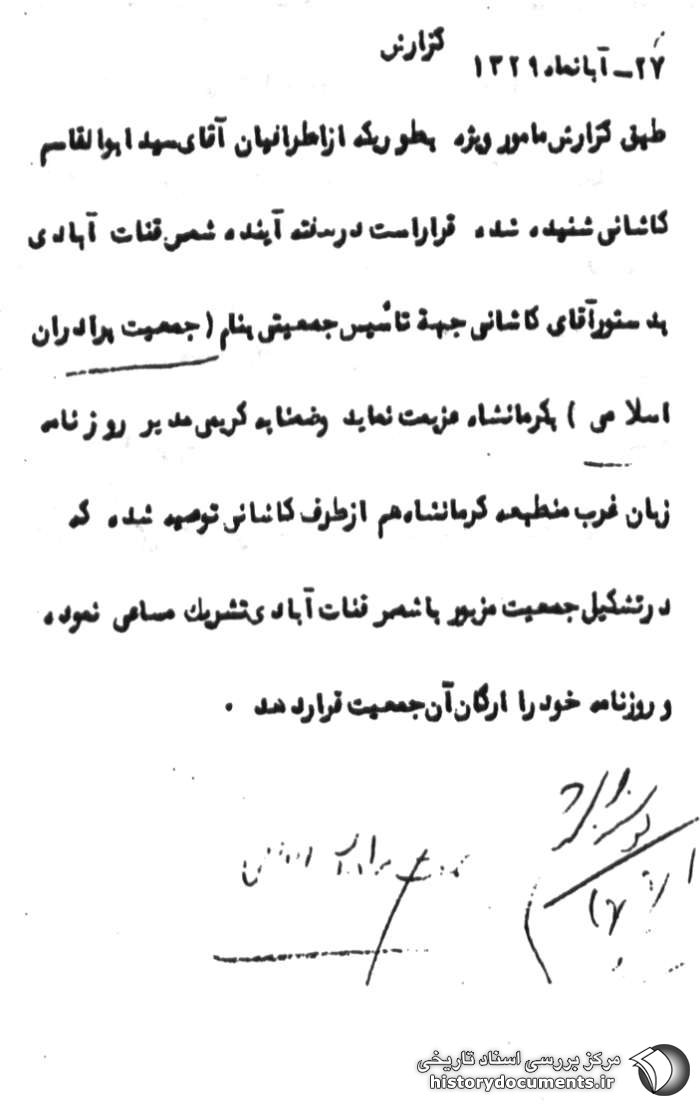 گزارش
۲۷ـ آبانماه ۱۳۲۹
طبق گزارش مامور ویژه بطوریکه ازاطرافیان آقای سید ابوالقاسم
کاشانی شنیده شده قراراست درهفته آینده شمس قنات آبادی
بدستور آقای کاشانی جهة تأسیس جمعیتی بنام ( جمعیت برادران
اسلامی ) بکرمانشاه عزیمت نماید وضمنابه کریمی مدیر روزنامه
زبان غرب منطبعه کرمانشاه هم ازطرف کاشانی توصیه شده که
درتشکیل جمعیت مزبور باشمس قنات آبادی تشریک مساعی نموده
و روزنامه خود را ارگان آن جمعیت قراردهد .
مرکز بررسی اسناد تاریخی
historydocuments.ir